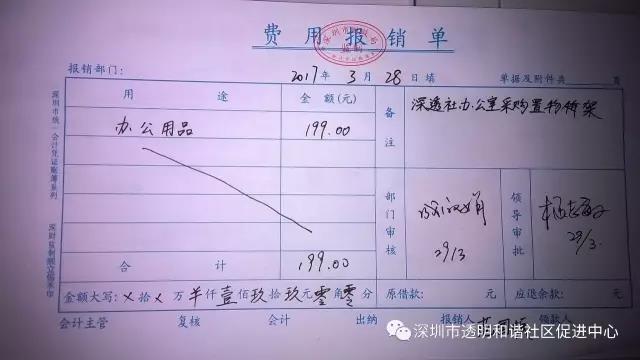 费用报销单
报销部门： 2017年3月28日填 单据及附件共 页
用途 金额(元) 备注 深透社办公室采购置物桥架
办公用品 199.00
部门审核 29/3 领导审批 29/3.
合计 199.00
金额大写：×拾×万羊仟壹佰玖拾玖元零角零分 原借款： 元 应退余款： 元
会计主管 复核 会计 出纳 报销人 领款人
深圳市统一会计凭证账簿系列
深圳市透明和谐社区促进中心